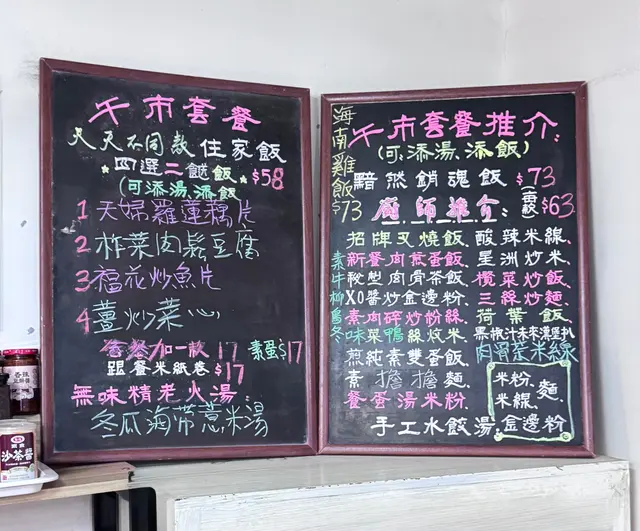 午市套餐
天天不同款住家飯
四選二餸飯 $58
(可添湯、添飯
1 天婦羅蓮藕片
2 榨菜肉鬆豆腐
3 福花炒魚片
4 薑炒菜心
套餐加一款 17 素蛋$17
跟餐米紙卷$17
無味精老火湯:
冬瓜海帶薏米湯
海南雞飯 $73
午市套餐推介:
(可添湯、添飯)
黯然銷魂飯 $73
廚師推介: $63
招牌叉燒飯、酸辣米線、
新餐肉煎蛋飯、星洲炒米、
秘型肉骨茶飯、欖菜炒飯、
XO醬炒金邊粉、三絲炒麵、
素肉碎炒粉絲、荷葉飯、
味菜鴨絲炆米、黑椒汁未來漢堡扒
煎純素雙蛋飯、肉骨茶米線
素擔擔麵、
餐蛋湯米粉
手工水餃湯、金邊粉
米粉、麵、
米線、
沙茶醬